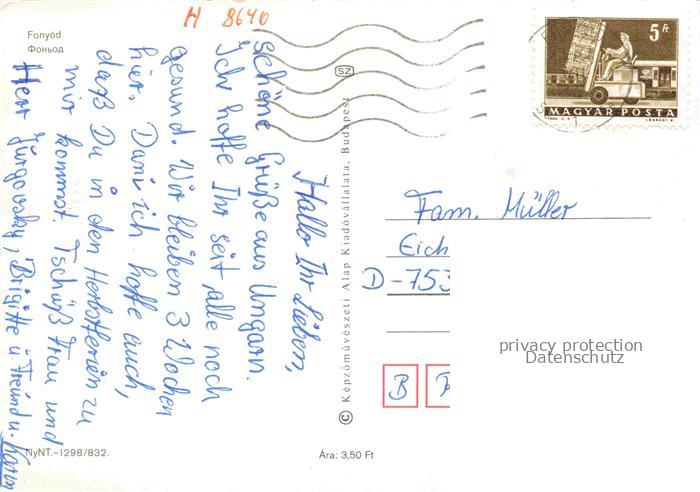 H 8640
Fonyód
Фоньод
Hallo Ihr Lieben,
schöne Grüße aus Ungarn.
Ich hoffe Ihr seit alle noch
gesund. Wir bleiben 3 Wochen
hier. Dani ich hoffe auch,
daß Du in den Herbstferien zu
mir kommst. Tschüß Frau und
Herr Jürgovsky, Brigitte u. Freund u. Karin
NyNT.–1298/832.
Ára: 3,50 Ft
SZ
© Képzőművészeti Alap Kiadóvállalata, Budapest
5 Ft
MAGYAR POSTA
Fam. Müller
Eich
D-753
B
privacy protection
Datenschutz